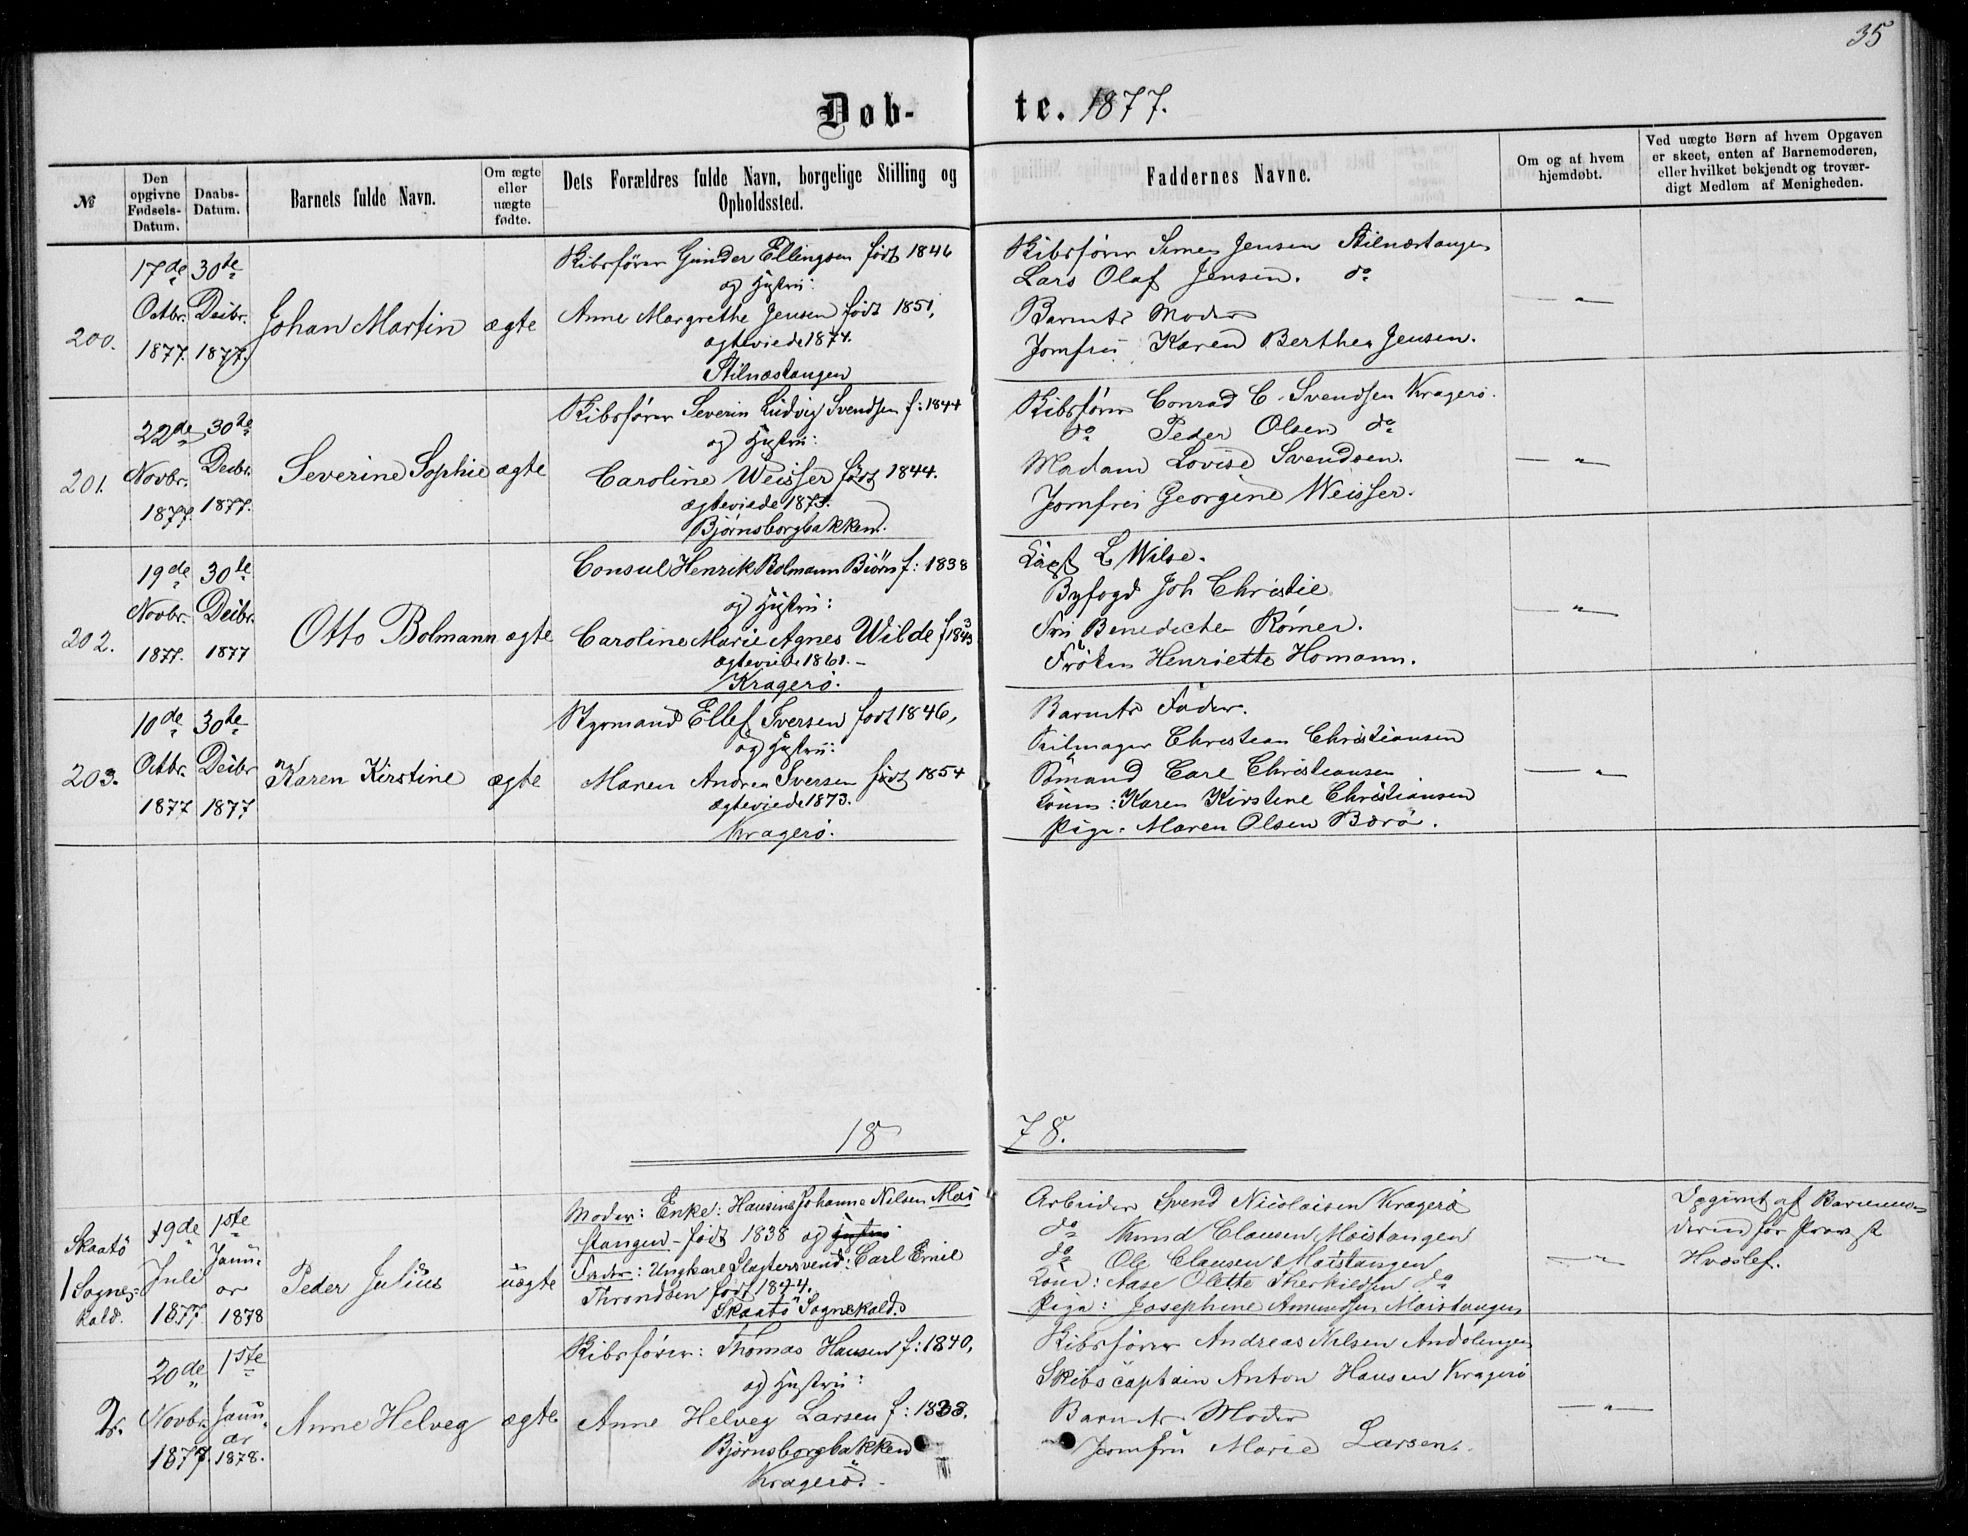 35
Døb-te. 1877.
№
Den opgivne Fødsels-Datum.
Daabs-Datum.
Barnets fulde Navn.
Om ægte eller uægte fødte.
Dets Forældres fulde Navn, borgelige Stilling og Opholdssted.
Faddernes Navne.
Om og af hvem hjemdøbt.
Ved uægte Børn af hvem Opgaven er skeet, enten af Barnemoderen, eller hvilket bekjendt og trovær-digt Medlem af Menigheden.
200.
17de Octbr. 1877.
30te Decbr. 1877.
Johan Martin
ægte
Skibsfører Gunder Ellingsen født 1846
og Hustru:
Anne Margrethe Jensen født 1851,
ægteviede 1874.
Stilnæstangen
Skibsfører Simen Jensen Stilnæstangen
Lars Olaf Jensen. do
Barnets Moder
Jomfru Karen Berthea Jensen.
— " —
201.
22de Novbr. 1877.
30te Decbr. 1877.
Severine Sophie
ægte
Skibsfører Severin Ludvig Svendsen f: 1844
og Hustru:
Caroline Weisser født 1844.
ægteviede 1873.
Bjørnsborgbakken.
Skibsfører Conrad C. Svendsen Kragerø.
do Peder Olsen do
Madam Lovise Svendsen.
Jomfru Georgine Weisser.
— " —
202.
19de Novbr. 1877.
30te Decbr. 1877
Otto Bolmann
ægte
Consul Henrik Bolmann Biørn f: 1838
og Hustru:
Caroline Marie Agnes Wilde f 1843
ægteviede 1861. -
Kragerø.
L Wilse.
Byfogd Joh Christie.
Fru Benedicte Rømer.
Frøken Henriette Homann.
— " —
203.
10de Octbr. 1877
30te Decbr 1877
Karen Kirstine
ægte
Styrmand Ellef Iversen født 1846,
og Hustru:
Maren Andrea Iversen født 1854
ægteviede 1873.
Kragerø.
Barnets Fader.
Seilmager Christian Christiansen
Sømand Carl Christiansen
Karen Kirstine Christiansen
Pige: Maren Olsen Bærø.
— " —
1878.
Skaatø
1 Sogne-
kald.
19de Juli 1877
1ste Janu-ar 1878
Peder Julius
uægte
Moder: Enke: Hansine Johanne Nilsen Mæs
stangen - født 1838 og Hustru
Fader: Ungkarl Slagtersvend: Carl Emil
Throndsen født 1844.
Skaatø Sognekald.
Arbeider Svend Nicolaisen Kragerø
do Knud Clausen Moistangen
do Ole Clausen Moistangen
Kone: Aase Olette Therkildsen do
Pige: Josephine Amundsen Moistangen
— " —
Opgivet af Barnemo-
deren for Provst
Hvoslef.
2.
20de Novbr. 1877.
1ste Janu-ar 1878.
Anne Helveg
ægte
Skibsfører: Thomas Hansen f: 1840,
og Hustru:
Anne Helveg Larsen f: 1838.
Bjørnsborgbakken
Kragerø. -
Skibsfører Andreas Nilsen Andolingen
Skibscaptain Anton Hansen Kragerø
Barnets Moder
Jomfru Marie Larsen.
— " —